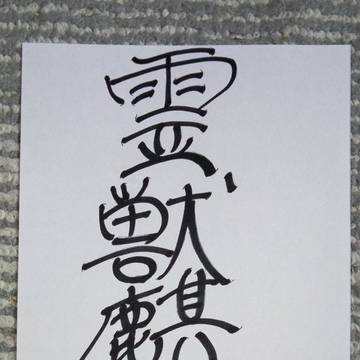 霊獣麒